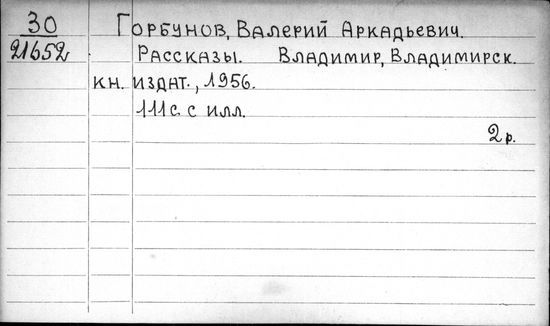 30 Горбунов, Валерий Аркадьевич.
21652 Рассказы. Владимир, Владимирск.
кн. издат., 1956.
111 с. с илл.
2 р.